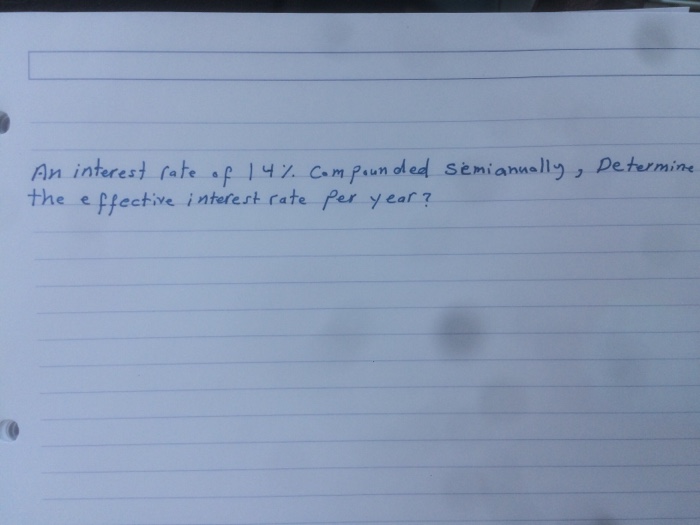 An interest rate of 14% Compounded Semiannually, Determine
the effective interest rate Per year?